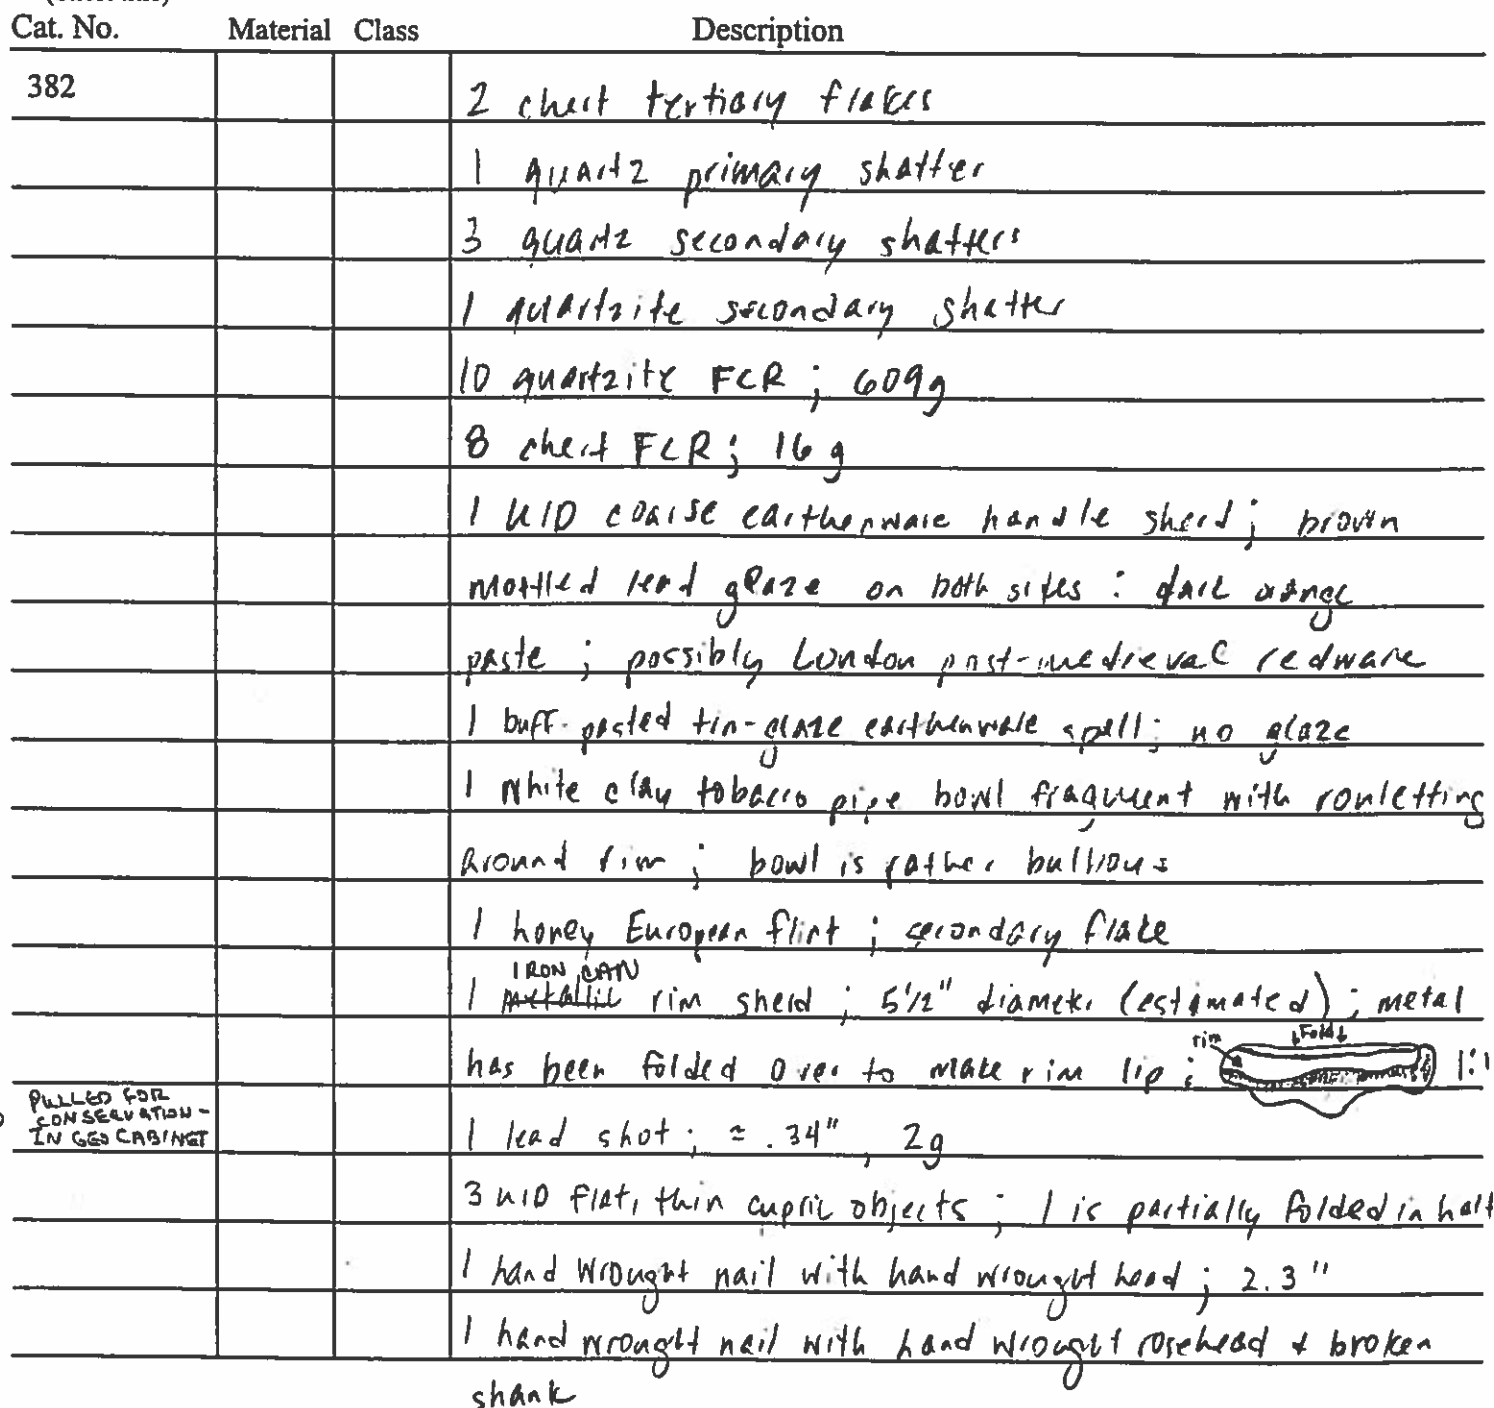 Cat. No. Material Class Description
382 2 chert tertiary flakes
1 quartz primary shatter
3 quartz secondary shatters
1 quartzite secondary shatter
10 quartzite FCR ; 609g
8 chert FCR ; 16 g
1 UID coarse earthenware handle sherd ; brown
mottled lead glaze on both sides : dark orange
paste ; possibly London post-medieval redware
1 buff-pasted tin-glaze earthenware spall ; no glaze
1 white clay tobacco pipe bowl fragment with rouletting
around rim ; bowl is rather bulbous
1 honey European flint ; secondary flake
IRON CAN
1 metallic rim sherd ; 5 1/2" diameter (estimated) ; metal
rim ↓Fold↓
has been folded over to make rim lip : 1:1
PULLED FOR
CONSERVATION -
IN GEO CABINET
1 lead shot ; ≈ .34" , 2g
3 UID flat, thin cupric objects ; 1 is partially folded in half
1 hand wrought nail with hand wrought head ; 2.3"
1 hand wrought nail with hand wrought rosehead + broken
shank